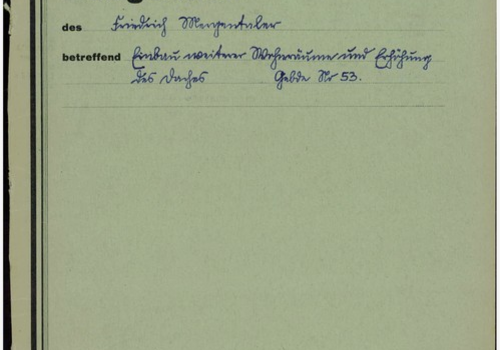 des Friedrich Mergenthaler
betreffend Einbau weiterer Wohnräume und Erhöhung
des Daches Gebde Nr 53.